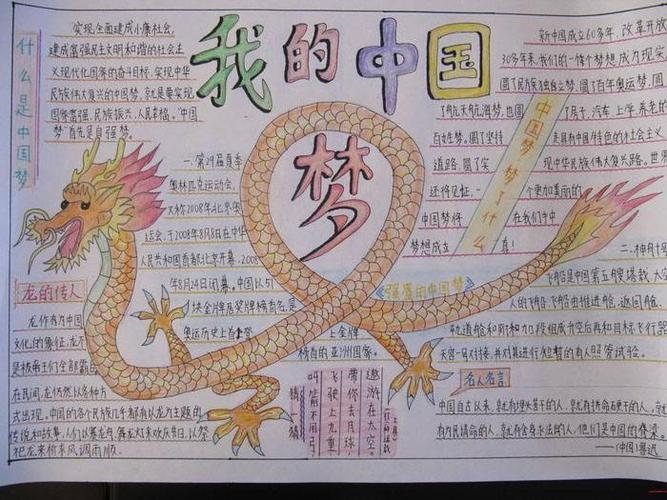 我的中国
梦
什么是中国梦
实现全面建成小康社会，
建成富强民主文明和谐的社会主
义现代化国家的奋斗目标，实现中华
民族伟大复兴的中国梦，就是要实现
国家富强、民族振兴、人民幸福。“中国
梦”首先是自强梦。
一.第29届夏季
奥林匹克运动会，
又称2008年北京奥
运会，于2008年8月8日在中华
人民共和国首都北京开幕，2008
年8月24日闭幕。中国以51
块金牌居奖牌榜首名，是
奥运历史上首
上金牌
榜首的亚洲国家。
龙的传人
龙作为中国
文化的象征，龙不
是被帝王们全部霸
在民间，龙仍然以各种方
式出现，中国的各个民族几乎都有以龙为主题的
传说和故事，人们以赛龙舟、舞龙灯来欢庆节日，以祭
祀龙来祈求风调雨顺。
新中国成立60多年，改革开放
30多年来，我们的一个个梦想成为现实
圆了民族独立梦，圆了百年奥运梦，圆
了航天航海梦，也圆
了房子、汽车、上学、养老
百姓梦。圆了坚持
走具有中国特色的社会主义
道路，圆了实
现中华民族伟大复兴路。世
还将见证，一
个更加美丽的
中国梦将
在我们手中
梦想成立
真！
中国梦 梦了什么
强盛的中国梦
二.神舟
飞船是中国第五艘载
人的飞船，飞船由推进舱、返回舱、
轨道舱和附加段组成，升空后再和目标飞行器
天宫一号对接，并对其进行短暂的有人照管试验。
猜猜
遨游在太空。
带你去月球，
飞驶上九重
叫箭不用弓
名人名言
中国自古以来，就有埋头苦干的人，就有拼命硬干的人，就
有为民请命的人，就有舍身求法的人，他们是中国的脊梁。
——(中国)鲁迅